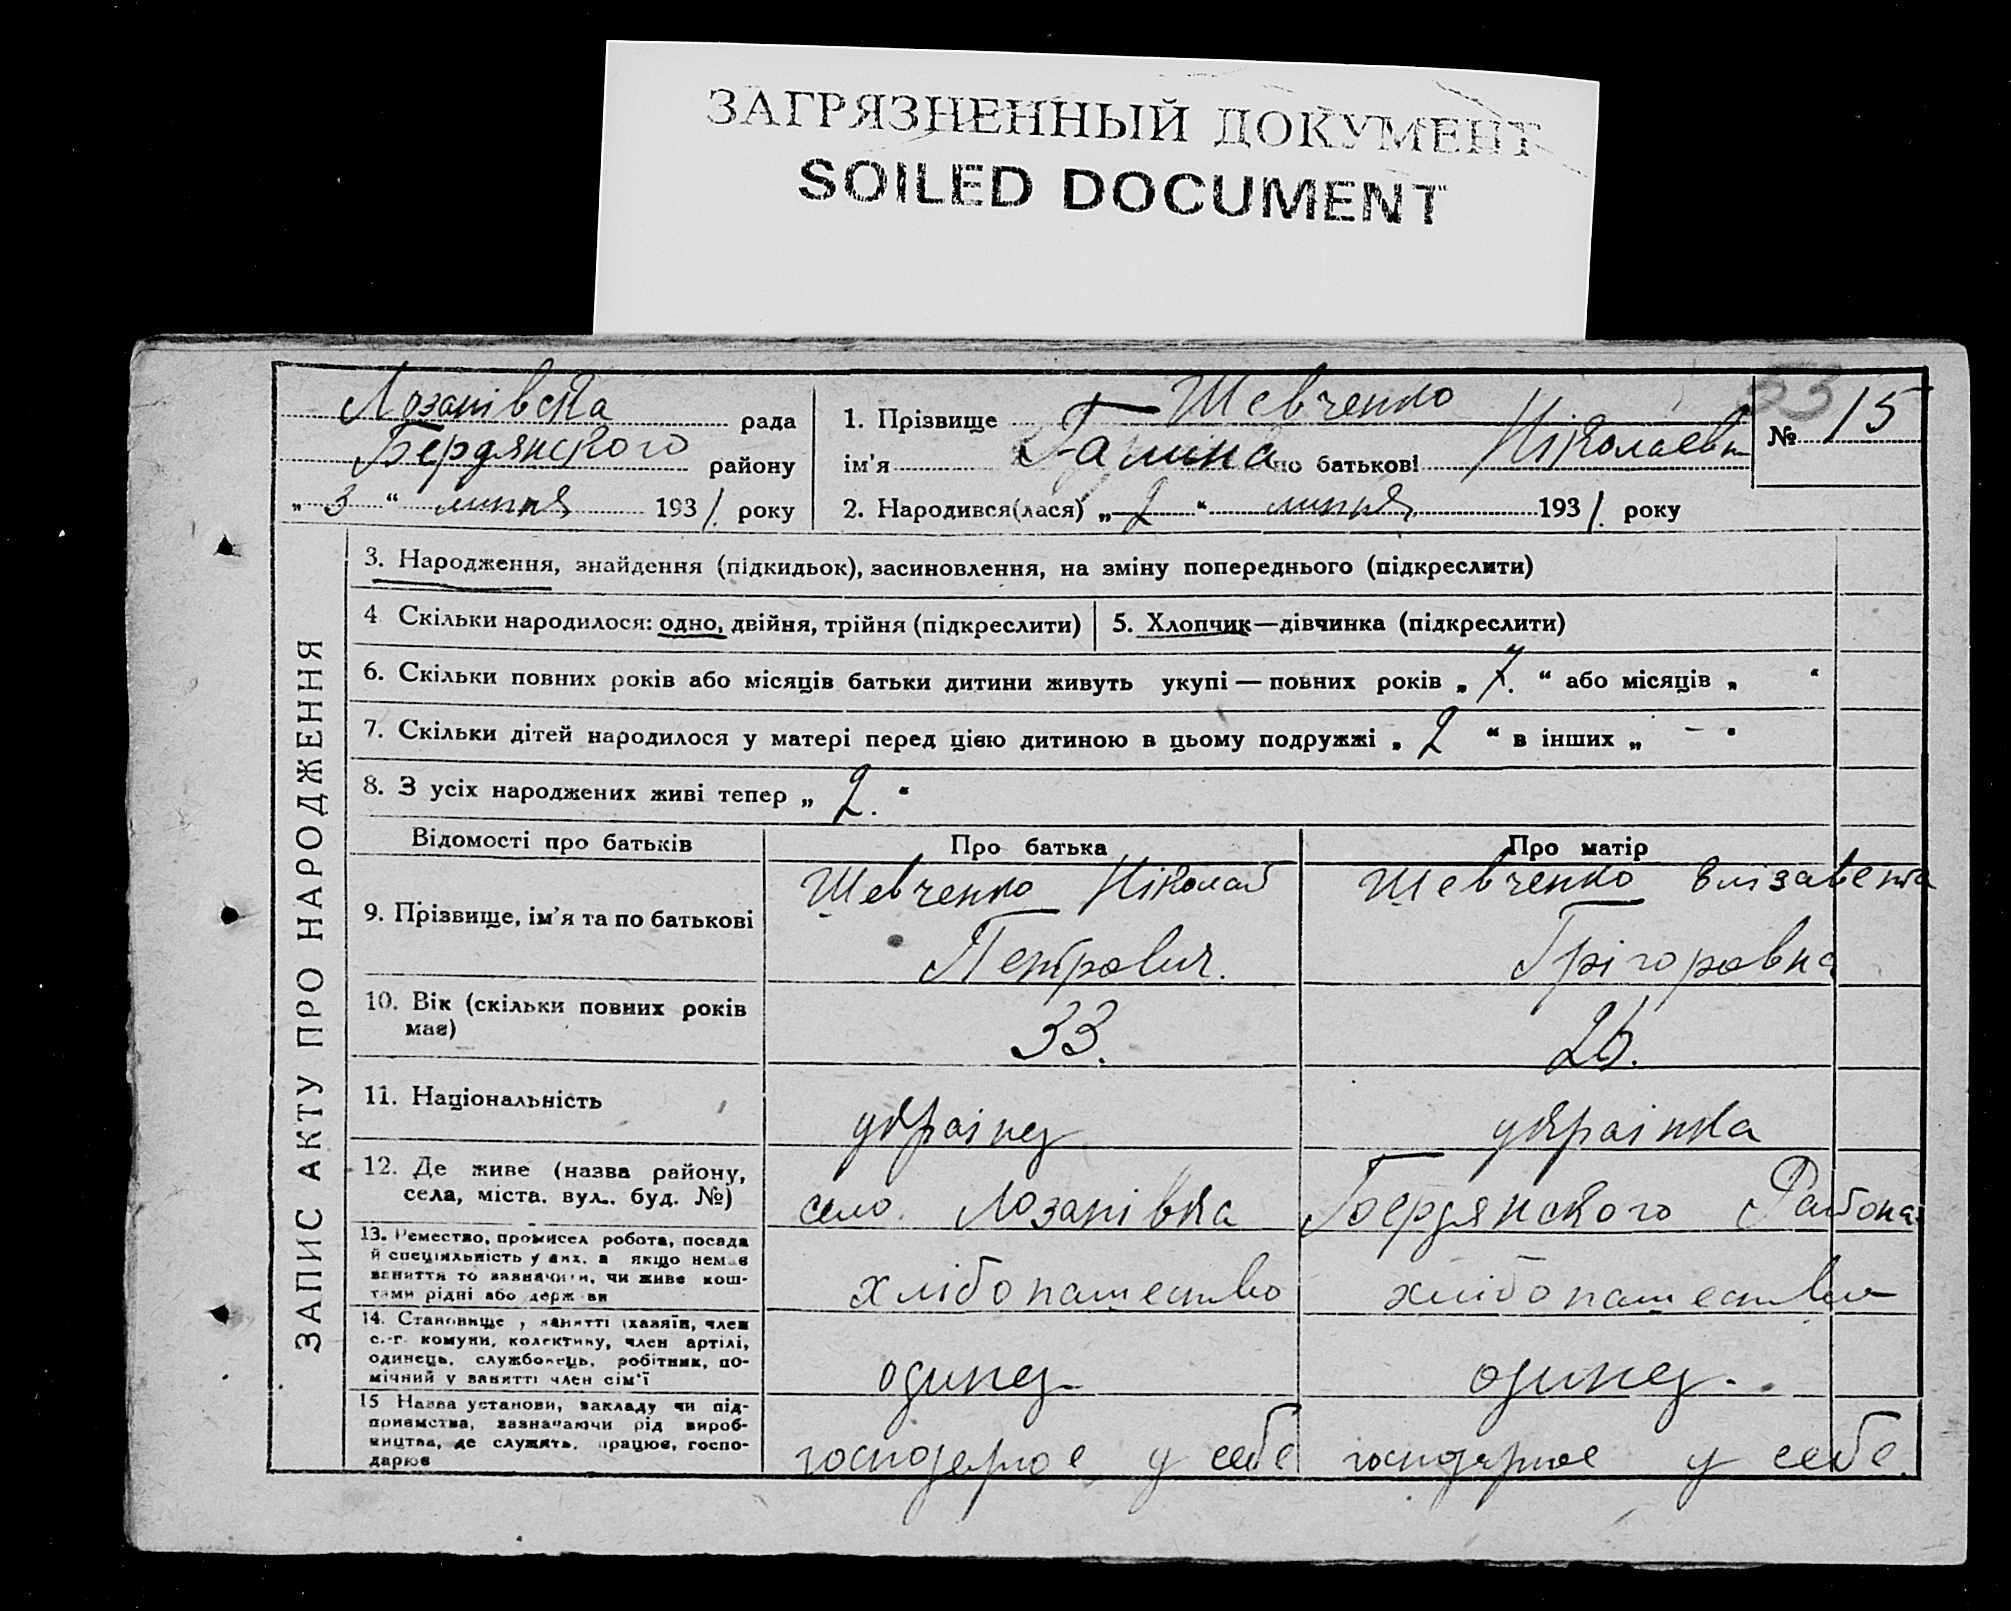 ЗАГРЯЗНЕННЫЙ ДОКУМЕНТ
SOILED DOCUMENT
Лозанівска рада
Бердянского району
„ 3 “ липня 1931. року
1. Прізвище Шевченко
ім'я Галина по батькові Ніколаевн
2. Народився(лася) „ 2 “ липня 1931. року
53
№ 15
ЗАПИС АКТУ ПРО НАРОДЖЕННЯ
3. Народження, знайдення (підкидьок), засиновлення, на зміну попереднього (підкреслити)
4 Скільки народилося: одно, двійня, трійня (підкреслити)
5. Хлопчик—дівчинка (підкреслити)
6. Скільки повних років або місяців батьки дитини живуть укупі — повних років „ 7. “ або місяців „ “
7. Скільки дітей народилося у матері перед цією дитиною в цьому подружжі „ 2 “ в інших „ — “
8. З усіх народжених живі тепер „ 2. “
Відомості про батьків
Про батька
Про матір
9. Прізвище, ім'я та по батькові
Шевченко Ніколай
Петрович.
Шевченко Елізавета
Грігоровна
10. Вік (скільки повних років
має)
33.
26.
11. Національність
українец
українка
12. Де живе (назва району,
села, міста. вул. буд. №)
село. Лозанівка Бердянского Района
13. Ремество, промисел робота, посада
й спеціяльність у них, а якщо немає
заняття то зазначити, чи живе кош-
тами рідні або держави
хлібопашество
хлібопашество
14. Становище у занятті (хазяїн, член
с.-г. комуни, колективу, член артілі,
одинець, службовець, робітник, по-
мічний у занятті член сім'ї
одинец
одинец.
15 Назва установи, закладу чи під-
приємства, зазначаючи рід вироб-
ництва, де служить, працює, госпо-
дарює
господарює у себе
господарює у себе.